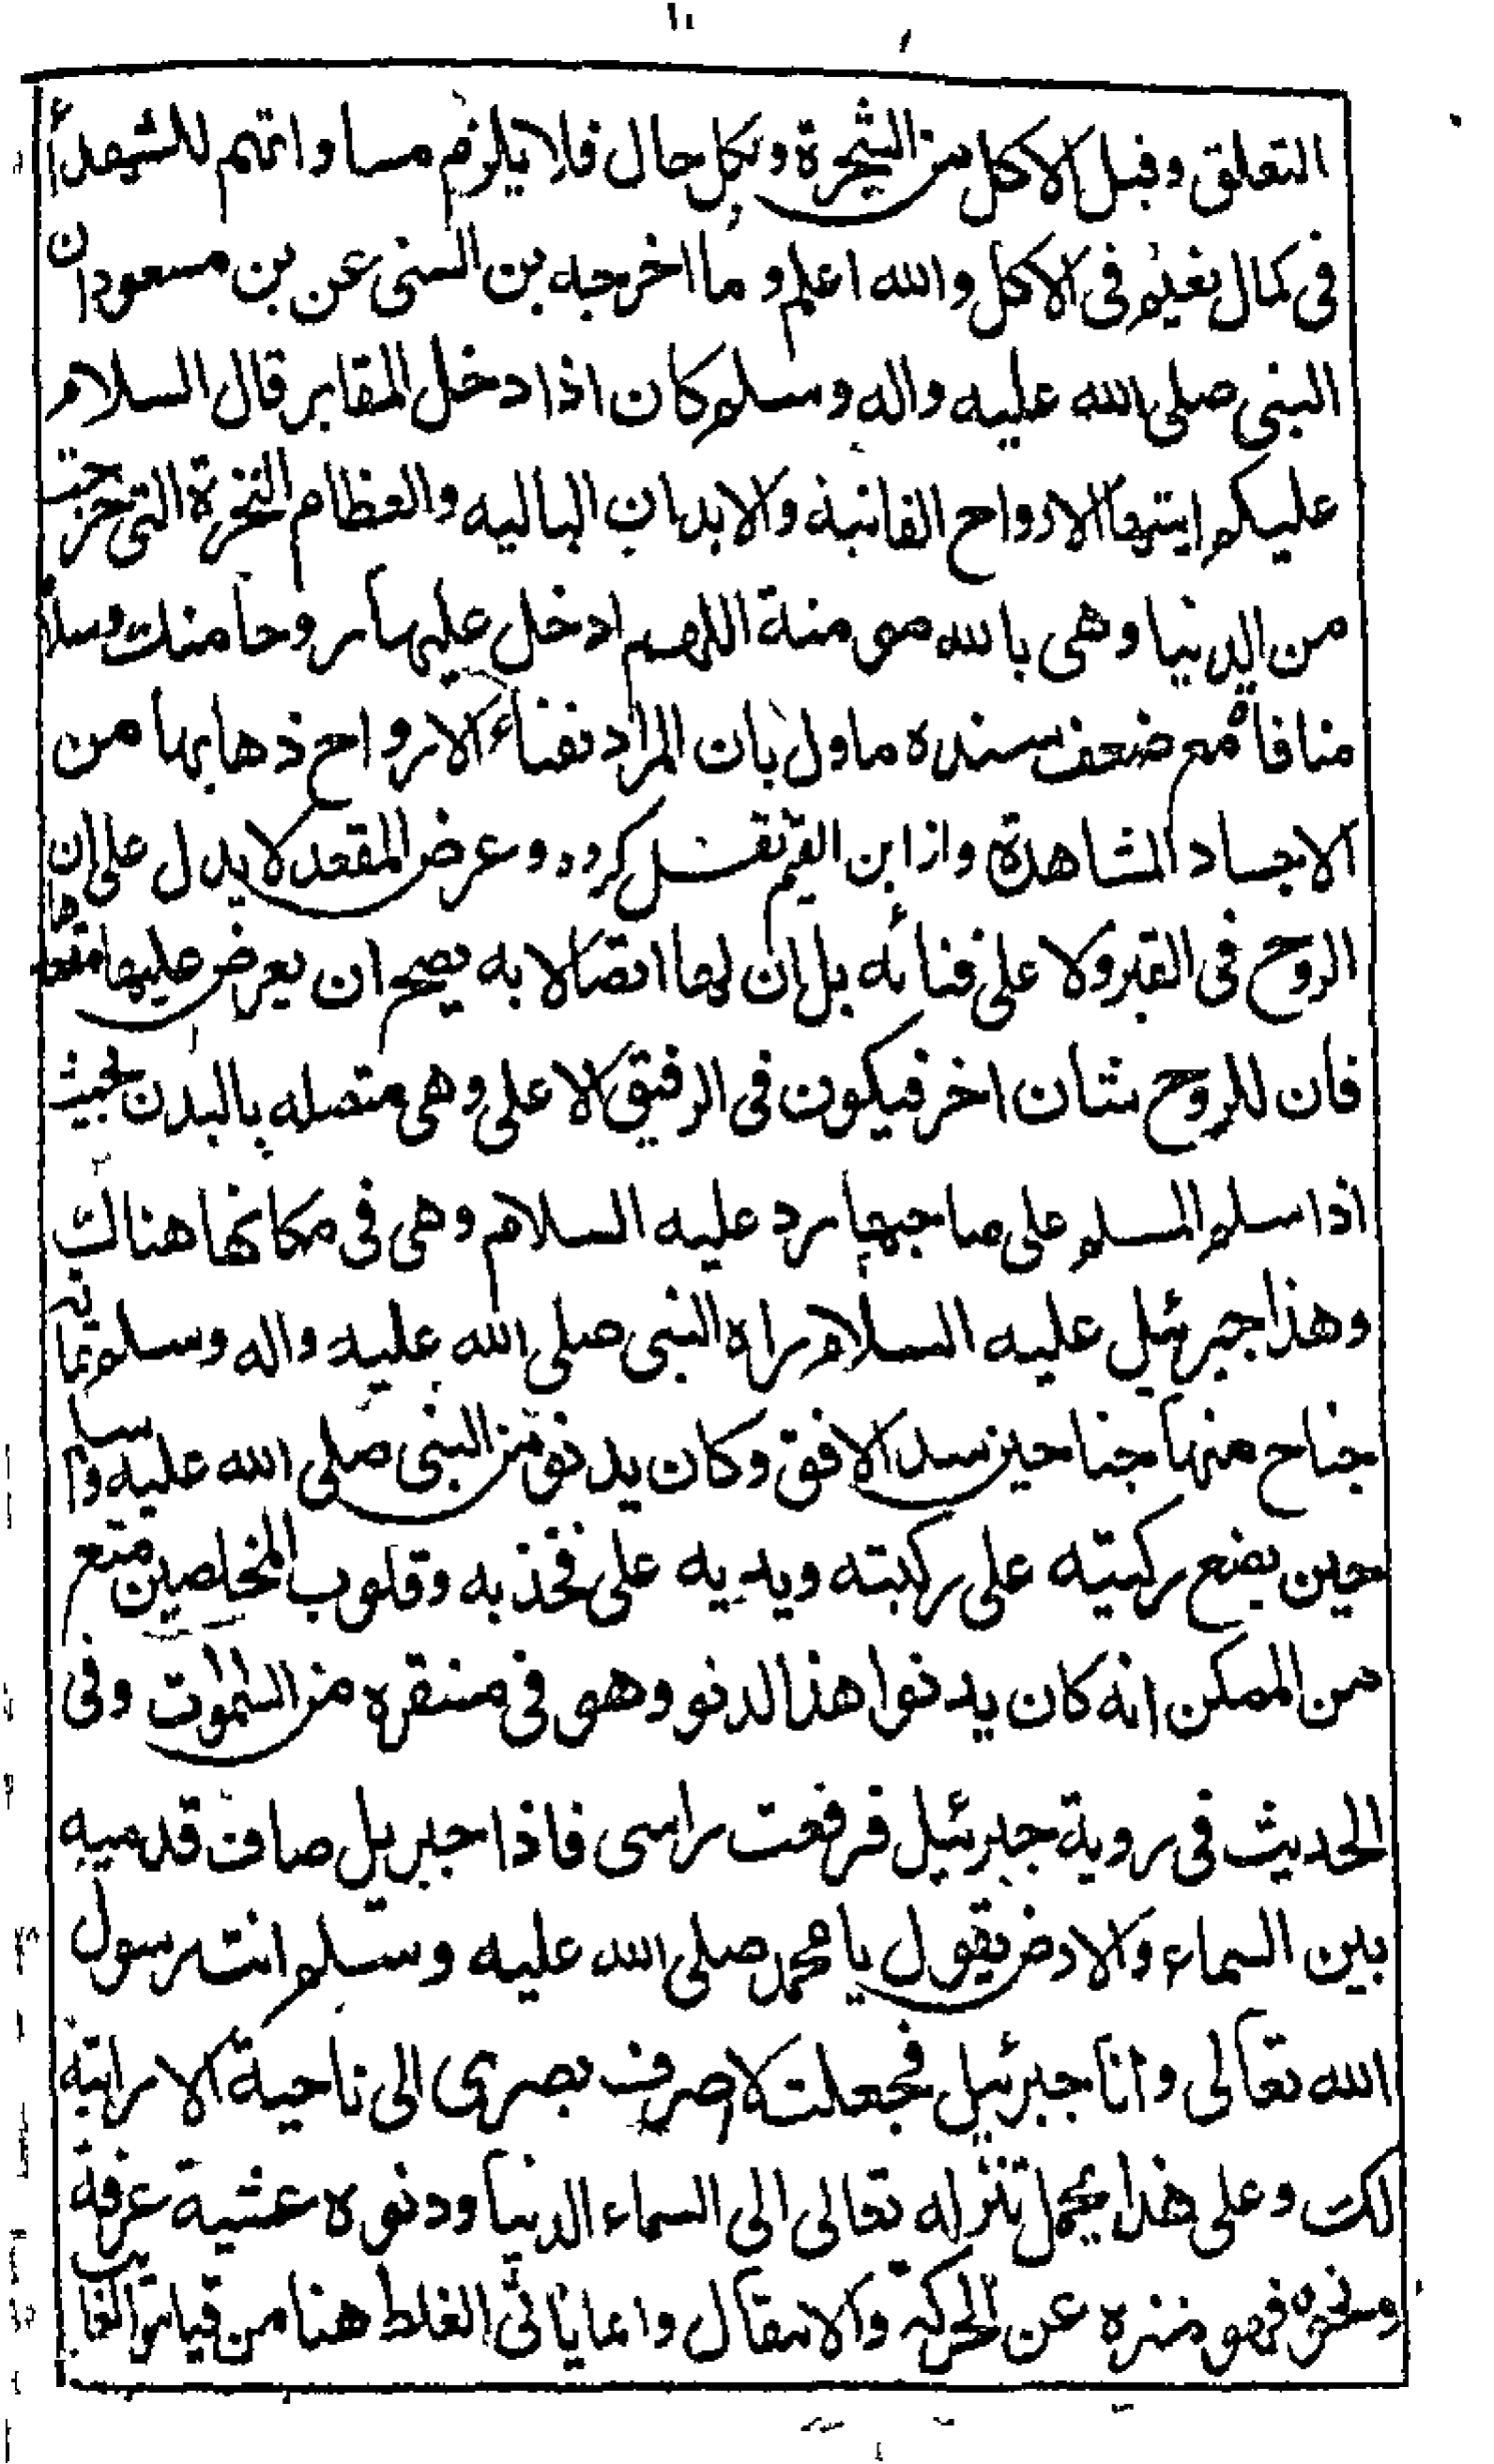 ١٠
التعلق وقبل الاكل من الشجرة وبكل حال فلا يلزم مساواتهم للشهداء
فى كمال نعيم فى الاكل والله اعلم وما اخرجه بن السنى عن بن مسعود ان
النبى صلى الله عليه واله وسلم كان اذا دخل المقابر قال السلام
عليكم ايتها الارواح الفانية والابدان الباليه والعظام النخرة التى خرجت
من الدنيا وهى بالله مومنة اللهم ادخل عليها روحا منك وسلاما
منافاة مع ضعف سنده ماول بان المراد بفناء الارواح ذهابها من
الاجساد المشاهدة واز ابن القيم نقل كرده وعرض المقعد لا يدل على ان
الروح فى القبر ولا على فنائه بل ان لها اتصالا به يصح ان يعرض عليها مقعدها
فان للروح شان اخر فيكون فى الرفيق الاعلى وهى متصله بالبدن بحيث
اذا سلم المسلم على صاحبها رد عليه السلام وهى فى مكانها هناك
وهذا جبرئيل عليه السلام راه النبى صلى الله عليه واله وسلم
جناح منها جناحين سد الافق وكان يدنو من النبى صلى الله عليه
حين يضع ركبتيه على ركبته ويديه على فخذيه وقلوب المخلصين
من الممكن انه كان يدنوا هذا الدنو وهو فى مستقره من السموات وفى
الحديث فى روية جبرئيل فرفعت راسى فاذا جبريل صاف قدميه
بين السماء والارض يقول يا محمد صلى الله عليه وسلم انت رسول
الله تعالى وانا جبرئيل فجعلت لا اصرف بصرى الى ناحية الا رايته
لك وعلى هذا يحمل تنزله تعالى الى السماء الدنيا ودنوه عشية عرفة
ونحوه فهو منزه عن الحركه والانتقال وانما ياتى الغلط هنا من قياس الغايب